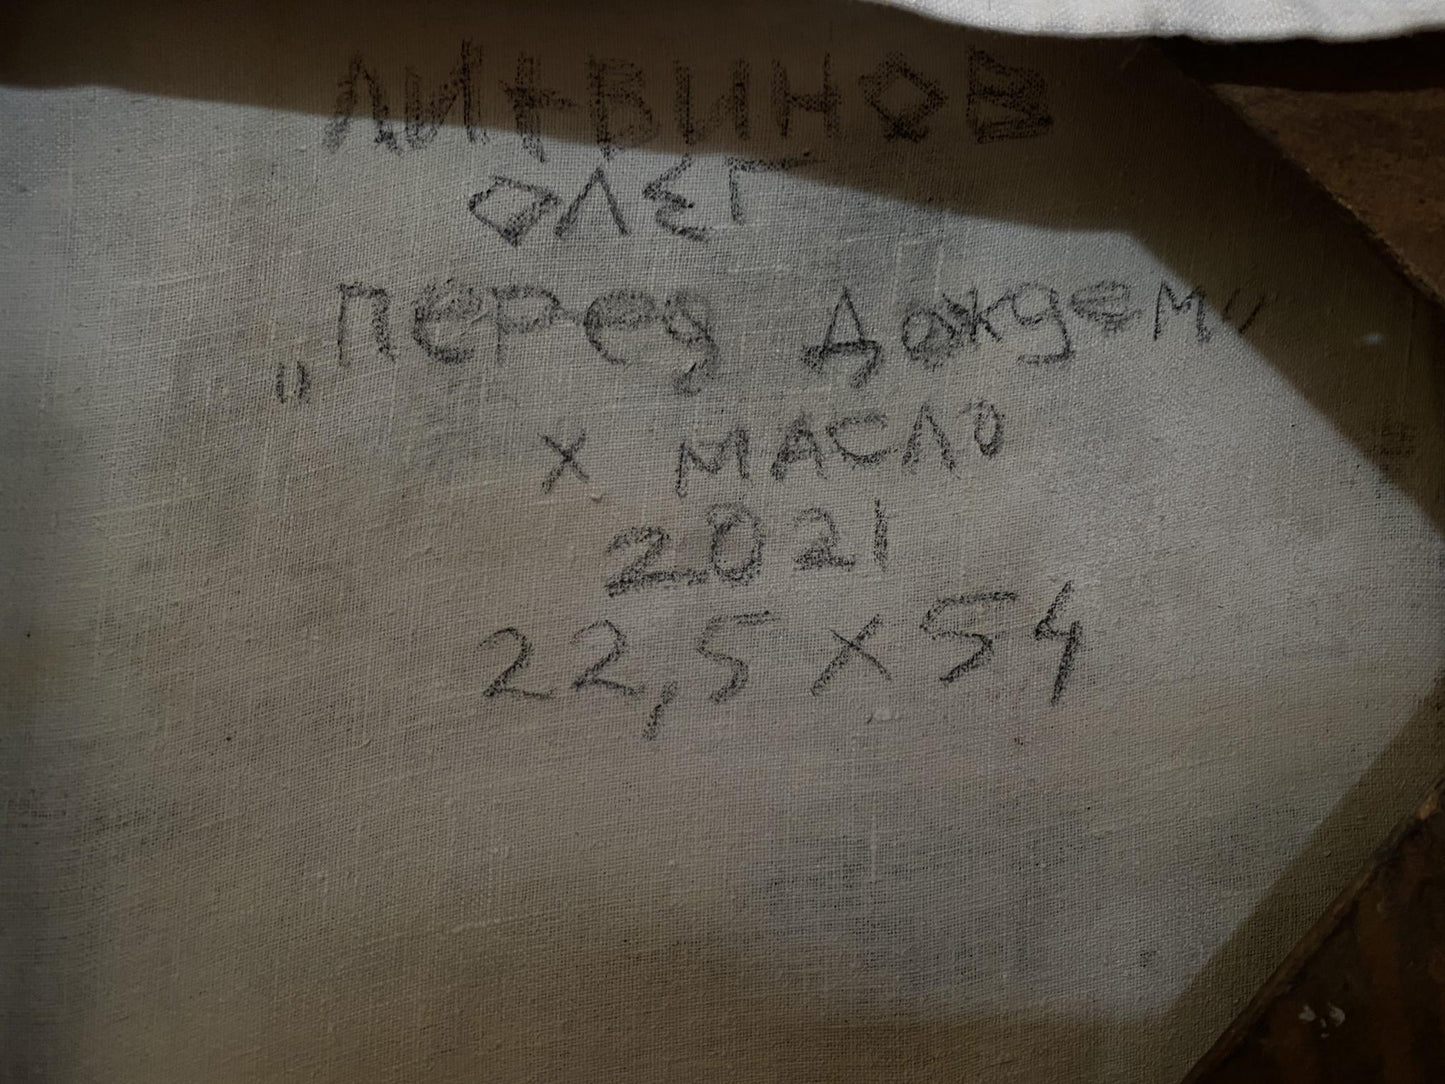 ЛИТВИНОВ
ОЛЕГ
„Перед Дождем"
х МАСЛО
2021
22,5 х 54